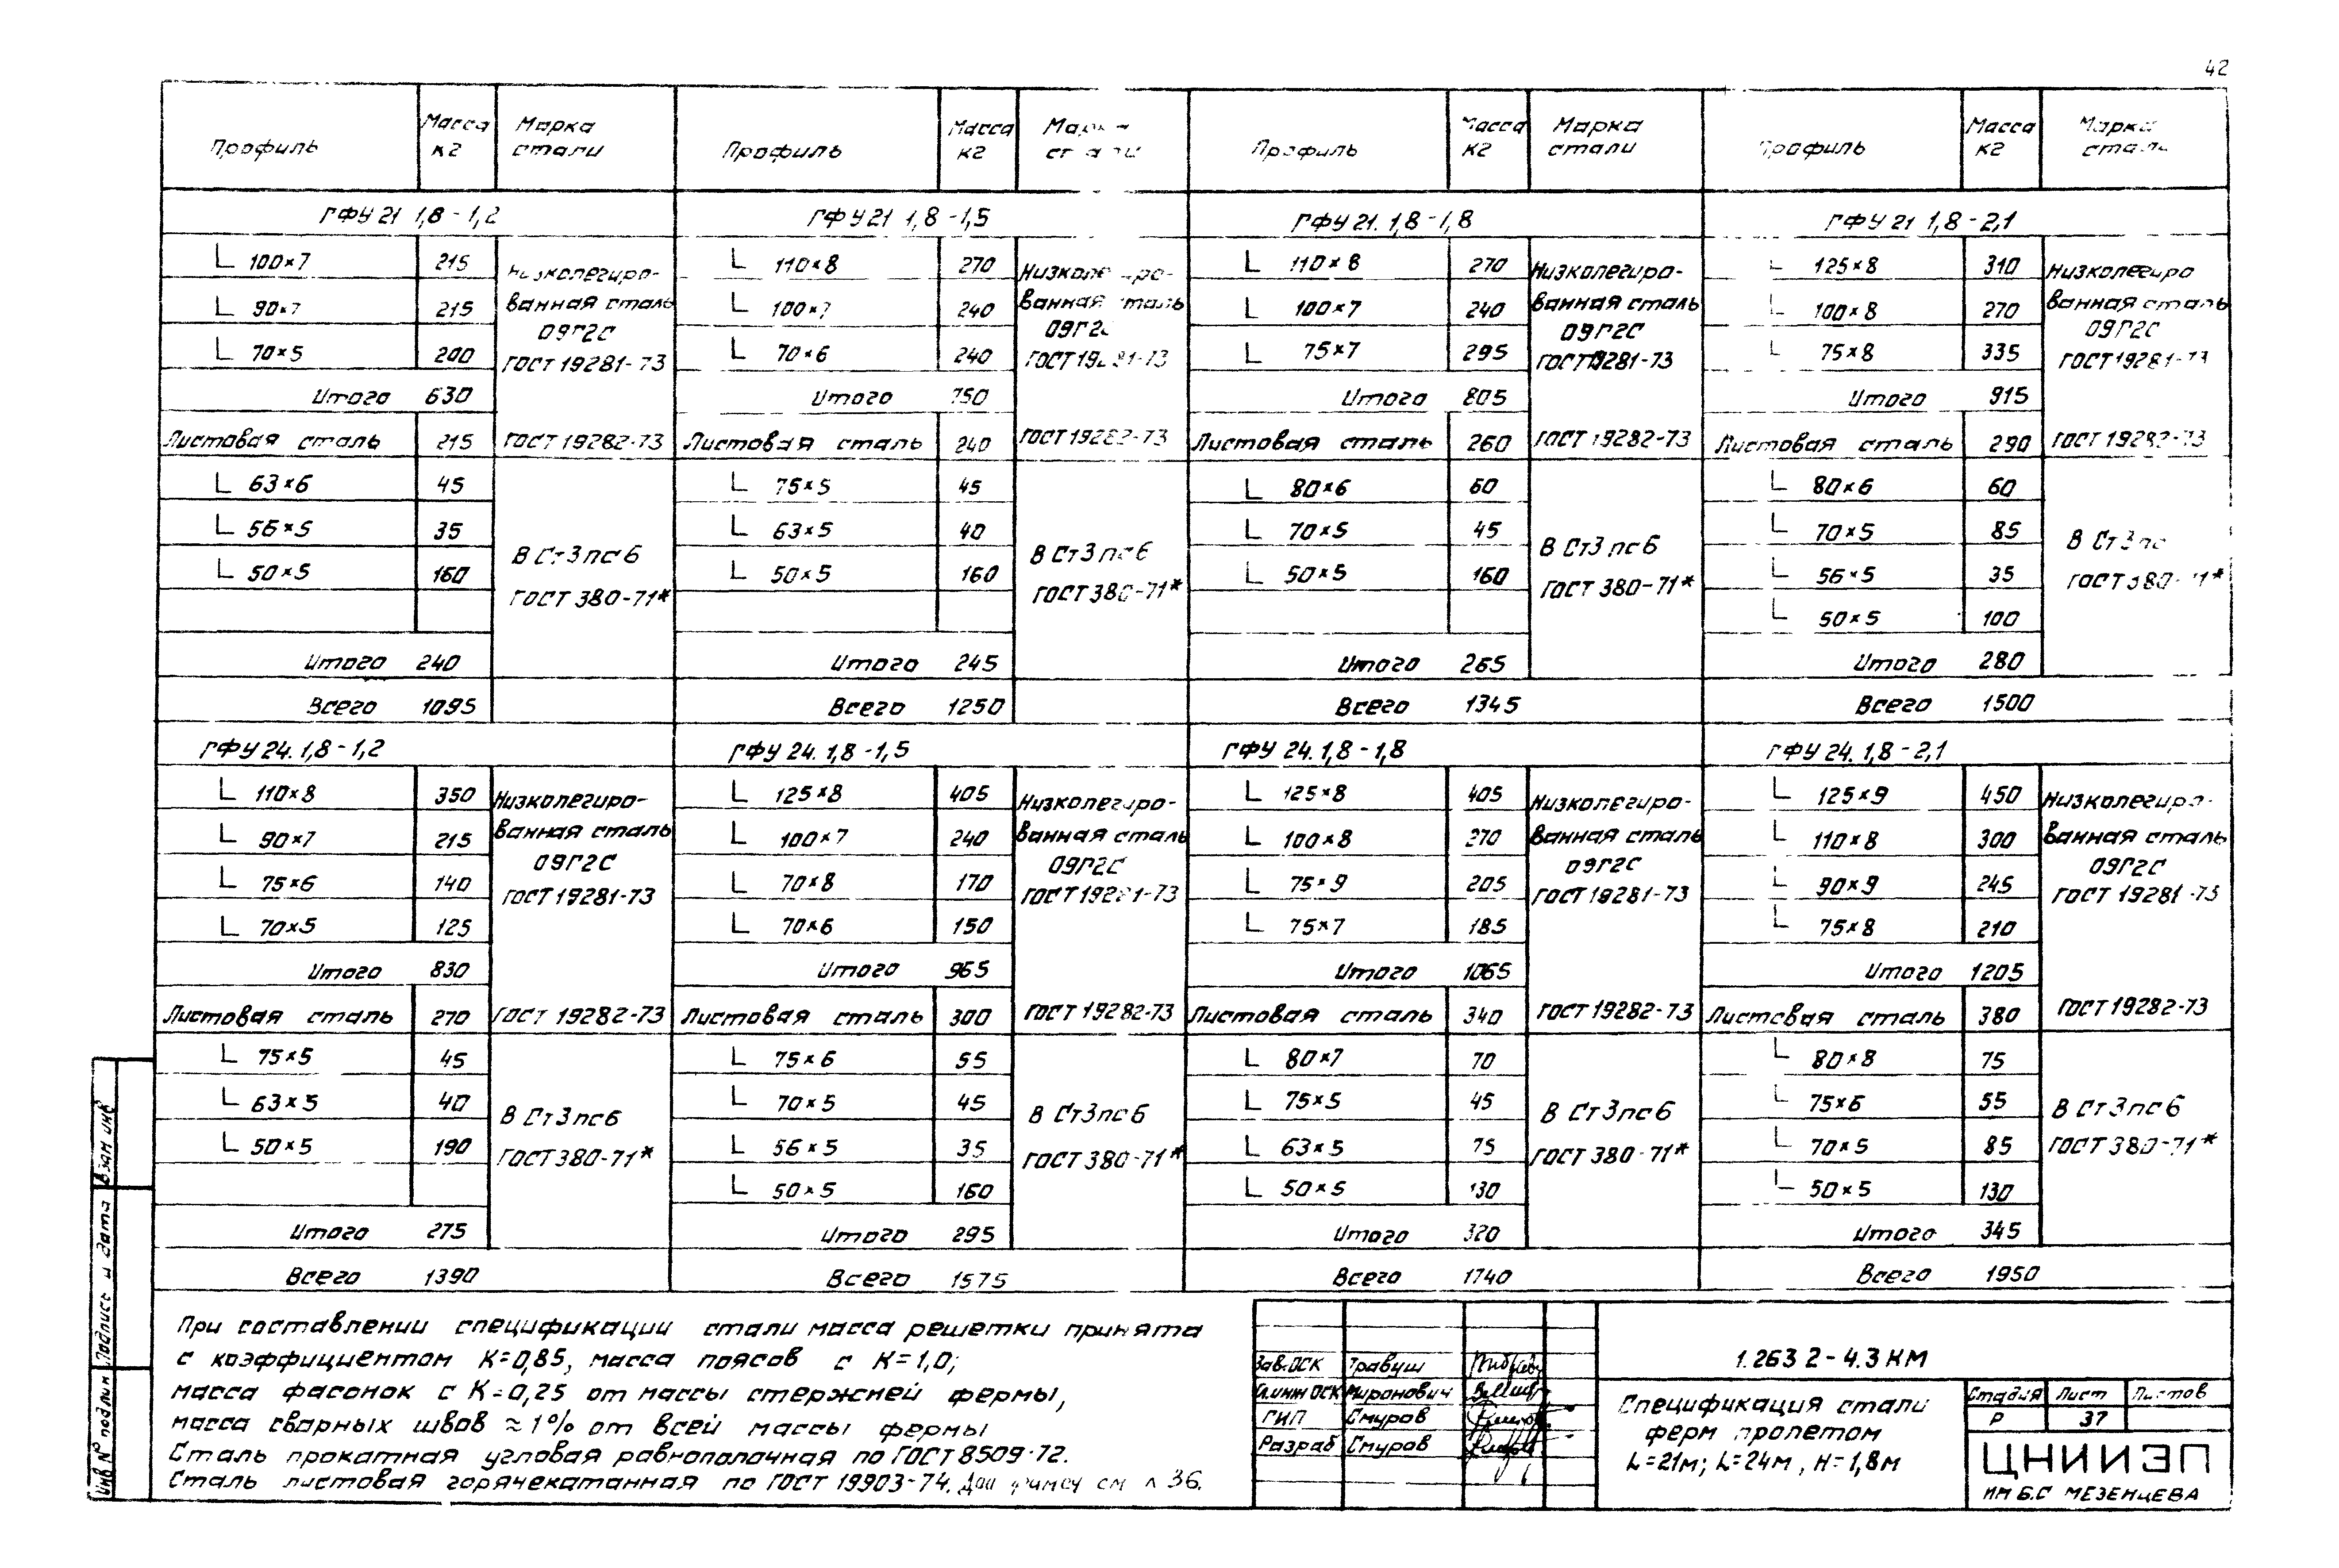 42
Профиль Масса кг Марка стали Профиль Масса кг Марка стали Профиль Масса кг Марка стали Профиль Масса кг Марка стали
ГФУ 21 1,8-1,2 ГФУ 21 1,8-1,5 ГФУ 21. 1,8-1,8 ГФУ 21 1,8-2,1
∟ 100×7 215 ∟ 110×8 270 ∟ 110×8 270 ∟ 125×8 310
Низколегиро- Низколегиро- Низколегиро- Низколегиро
∟ 90×7 215 ванная сталь ∟ 100×7 240 ванная сталь ∟ 100×7 240 ванная сталь ∟ 100×8 270 ванная сталь
09Г2С 09Г2С 09Г2С 09Г2С
∟ 70×5 200 ГОСТ 19281-73 ∟ 70×6 240 ГОСТ 19281-73 ∟ 75×7 295 ГОСТ 19281-73 ∟ 75×8 335 ГОСТ 19281-73
Итого 630 Итого 750 Итого 805 Итого 915
Листовая сталь 215 ГОСТ 19282-73 Листовая сталь 240 ГОСТ 19282-73 Листовая сталь 260 ГОСТ 19282-73 Листовая сталь 290 ГОСТ 19282-73
∟ 63×6 45 ∟ 75×5 45 ∟ 80×6 60 ∟ 80×6 60
∟ 56×5 35 ∟ 63×5 40 ∟ 70×5 45 ∟ 70×5 85
В Ст3пс6 В Ст3пс6 В Ст3пс6 В Ст3пс
∟ 50×5 160 ∟ 50×5 160 ∟ 50×5 160 ∟ 56×5 35
ГОСТ 380-71* ГОСТ 380-71* ГОСТ 380-71* ГОСТ 380-71*
∟ 50×5 100
Итого 240 Итого 245 Итого 265 Итого 280
Всего 1095 Всего 1250 Всего 1345 Всего 1500
ГФУ 24. 1,8-1,2 ГФУ 24. 1,8-1,5 ГФУ 24. 1,8-1,8 ГФУ 24. 1,8-2,1
∟ 110×8 350 Низколегиро- ∟ 125×8 405 Низколегиро- ∟ 125×8 405 Низколегиро- ∟ 125×9 450 Низколегиро-
∟ 90×7 215 ванная сталь ∟ 100×7 240 ванная сталь ∟ 100×8 270 ванная сталь ∟ 110×8 300 ванная сталь
09Г2С 09Г2С 09Г2С 09Г2С
∟ 75×6 140 ГОСТ 19281-73 ∟ 70×8 170 ГОСТ 19281-73 ∟ 75×9 205 ГОСТ 19281-73 ∟ 90×9 245 ГОСТ 19281-73
∟ 70×5 125 ∟ 70×6 150 ∟ 75×7 185 ∟ 75×8 210
Итого 830 Итого 965 Итого 1065 Итого 1205
Листовая сталь 270 ГОСТ 19282-73 Листовая сталь 300 ГОСТ 19282-73 Листовая сталь 340 ГОСТ 19282-73 Листовая сталь 380 ГОСТ 19282-73
∟ 75×5 45 ∟ 75×6 55 ∟ 80×7 70 ∟ 80×8 75
∟ 63×5 40 В Ст3пс6 ∟ 70×5 45 В Ст3пс6 ∟ 75×5 45 В Ст3пс6 ∟ 75×6 55 В Ст3пс6
∟ 50×5 190 ГОСТ 380-71* ∟ 56×5 35 ГОСТ 380-71* ∟ 63×5 75 ГОСТ 380-71* ∟ 70×5 85 ГОСТ 380-71*
∟ 50×5 160 ∟ 50×5 130 ∟ 50×5 130
Итого 275 Итого 295 Итого 320 Итого 345
Всего 1390 Всего 1575 Всего 1740 Всего 1950
При составлении спецификации стали масса решетки принята
с коэффициентом К=0,85, масса поясов с К=1,0;
масса фасонок с К=0,25 от массы стержней фермы,
масса сварных швов ≈1% от всей массы фермы
Сталь прокатная угловая равнополочная по ГОСТ 8509-72.
Сталь листовая горячекатанная по ГОСТ 19903-74. см л 36.
Зав.ОСК Травуш
Гл.инж ОСК Миронович
ГИП Смуров
Разраб Смуров
1.263 2-4.3 КМ
Спецификация стали
ферм пролетом
L=21м; L=24м, H=1,8м
Стадия Лист Листов
Р 37
ЦНИИЭП
ИМ Б.С МЕЗЕНЦЕВА
Взам инв
Подпись и дата
Инв № подлин